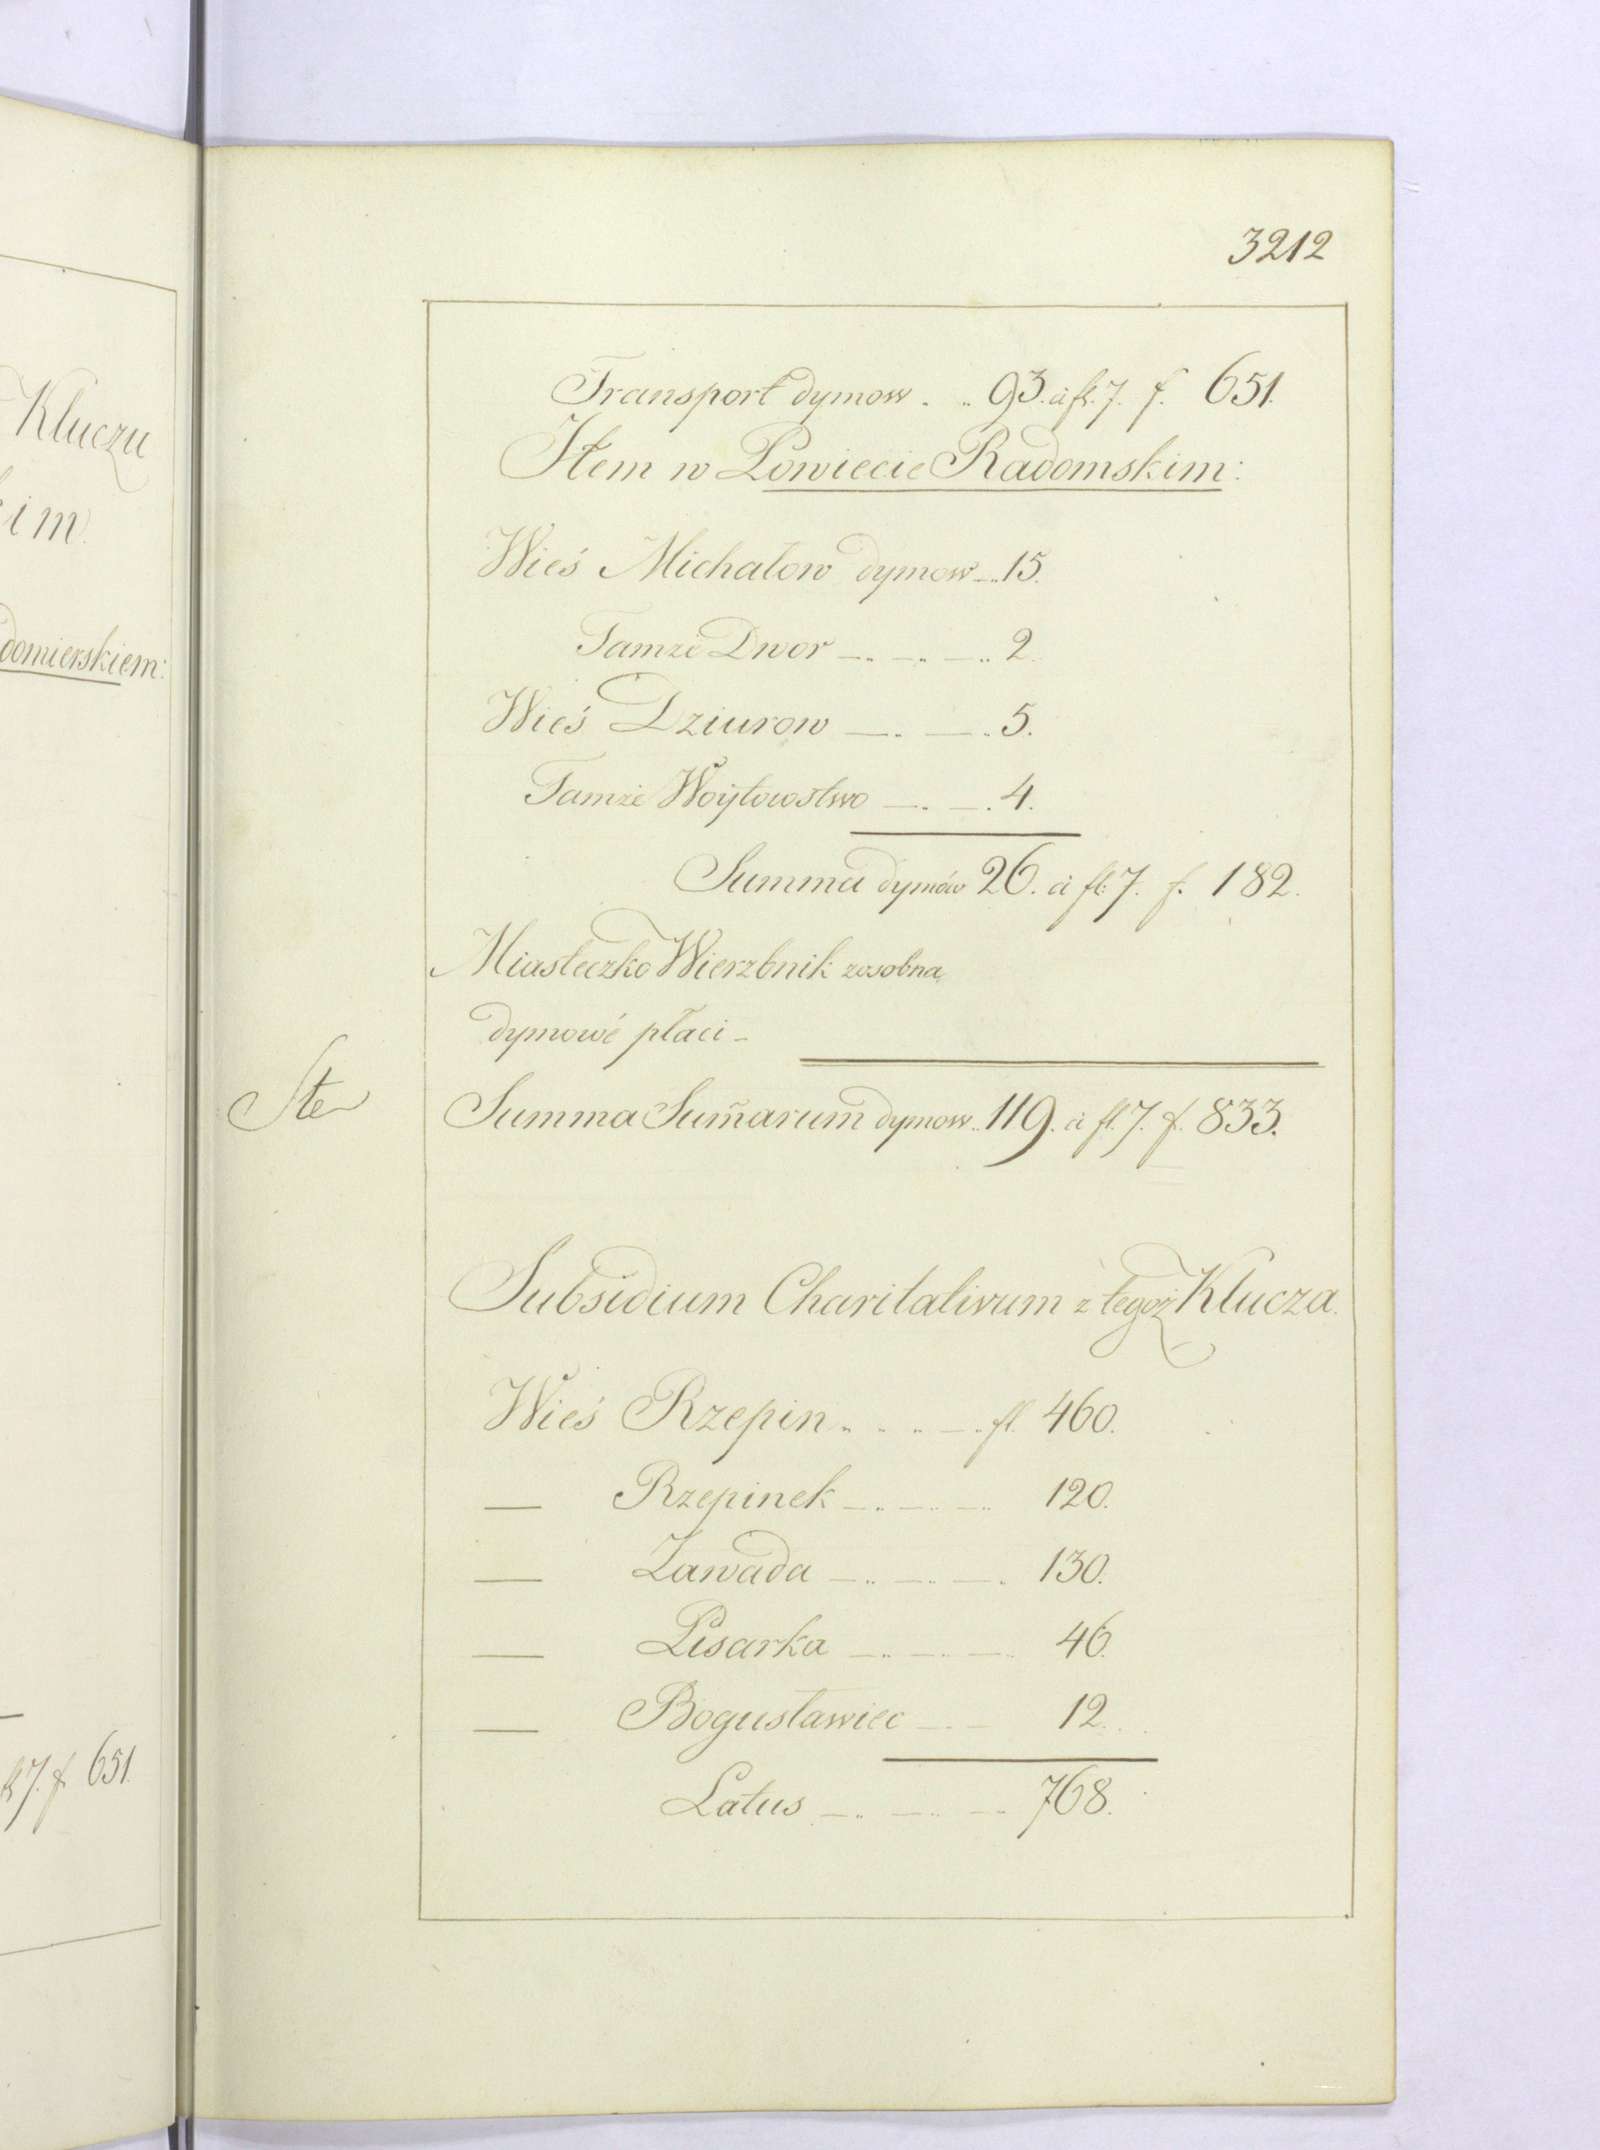 Kluczu
kim.
domierskiem:
fl 7. f. 651.
3212
Transport dymow . .. 93. à fl. 7. f. 651.
Item w Powiecie Radomskim:
Wieś Michałow dymow _.. 15.
Tamże Dwor _.. _.. _.. 2.
Wieś Dziurow _.. _.. 5.
Tamże Woytowstwo _.. _.. 4.
Summa dymów 26. à fl: 7. f. 182.
Miasteczko Wierzbnik zosobna
dymowé płaci _
Ste
Summa Sum̄arum dymow .. 119. à fl. 7. f. 833.
Subsidium Charitativum z tegoż Klucza.
Wieś Rzepin .. .. .. _.. fl. 460.
— Rzepinek _.. _.. _.. 120.
— Zawada _.. _.. _.. 130.
— Pisarka _.. _.. _.. 46.
— Bogusławiec _.. _ 12.
Latus _.. _.. _.. 768.